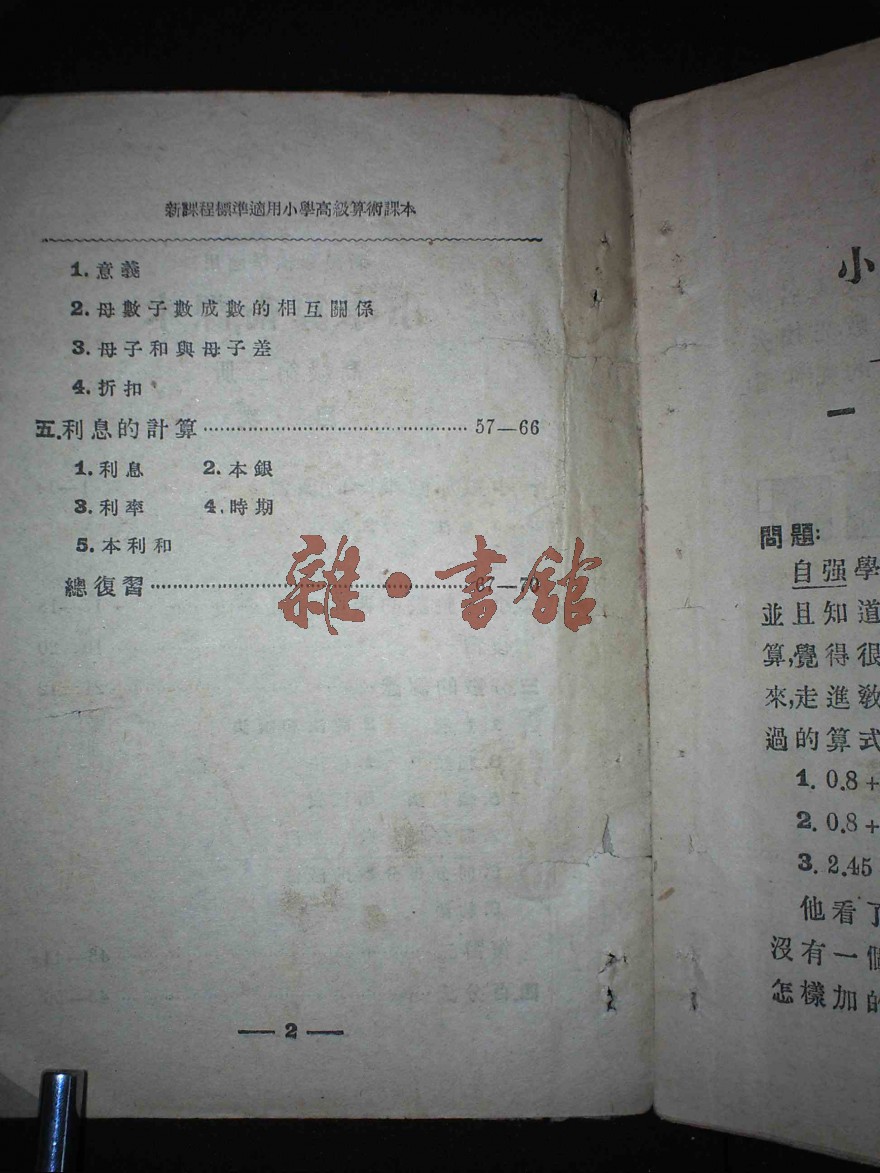 新課程標準適用小學高級算術課本
1. 意義
2. 母數子數成數的相互關係
3. 母子和與母子差
4. 折扣
五.利息的計算…………………………57—66
1. 利息 2. 本銀
3. 利率 4. 時期
5. 本利和
總復習…………………………67—70
雜·書館
— 2 —
小
一
問題:
自强學
並且知道
算,覺得很
來,走進教
過的算式
1. 0.8+
2. 0.8+
3. 2.45
他看了
沒有一個
怎樣加的